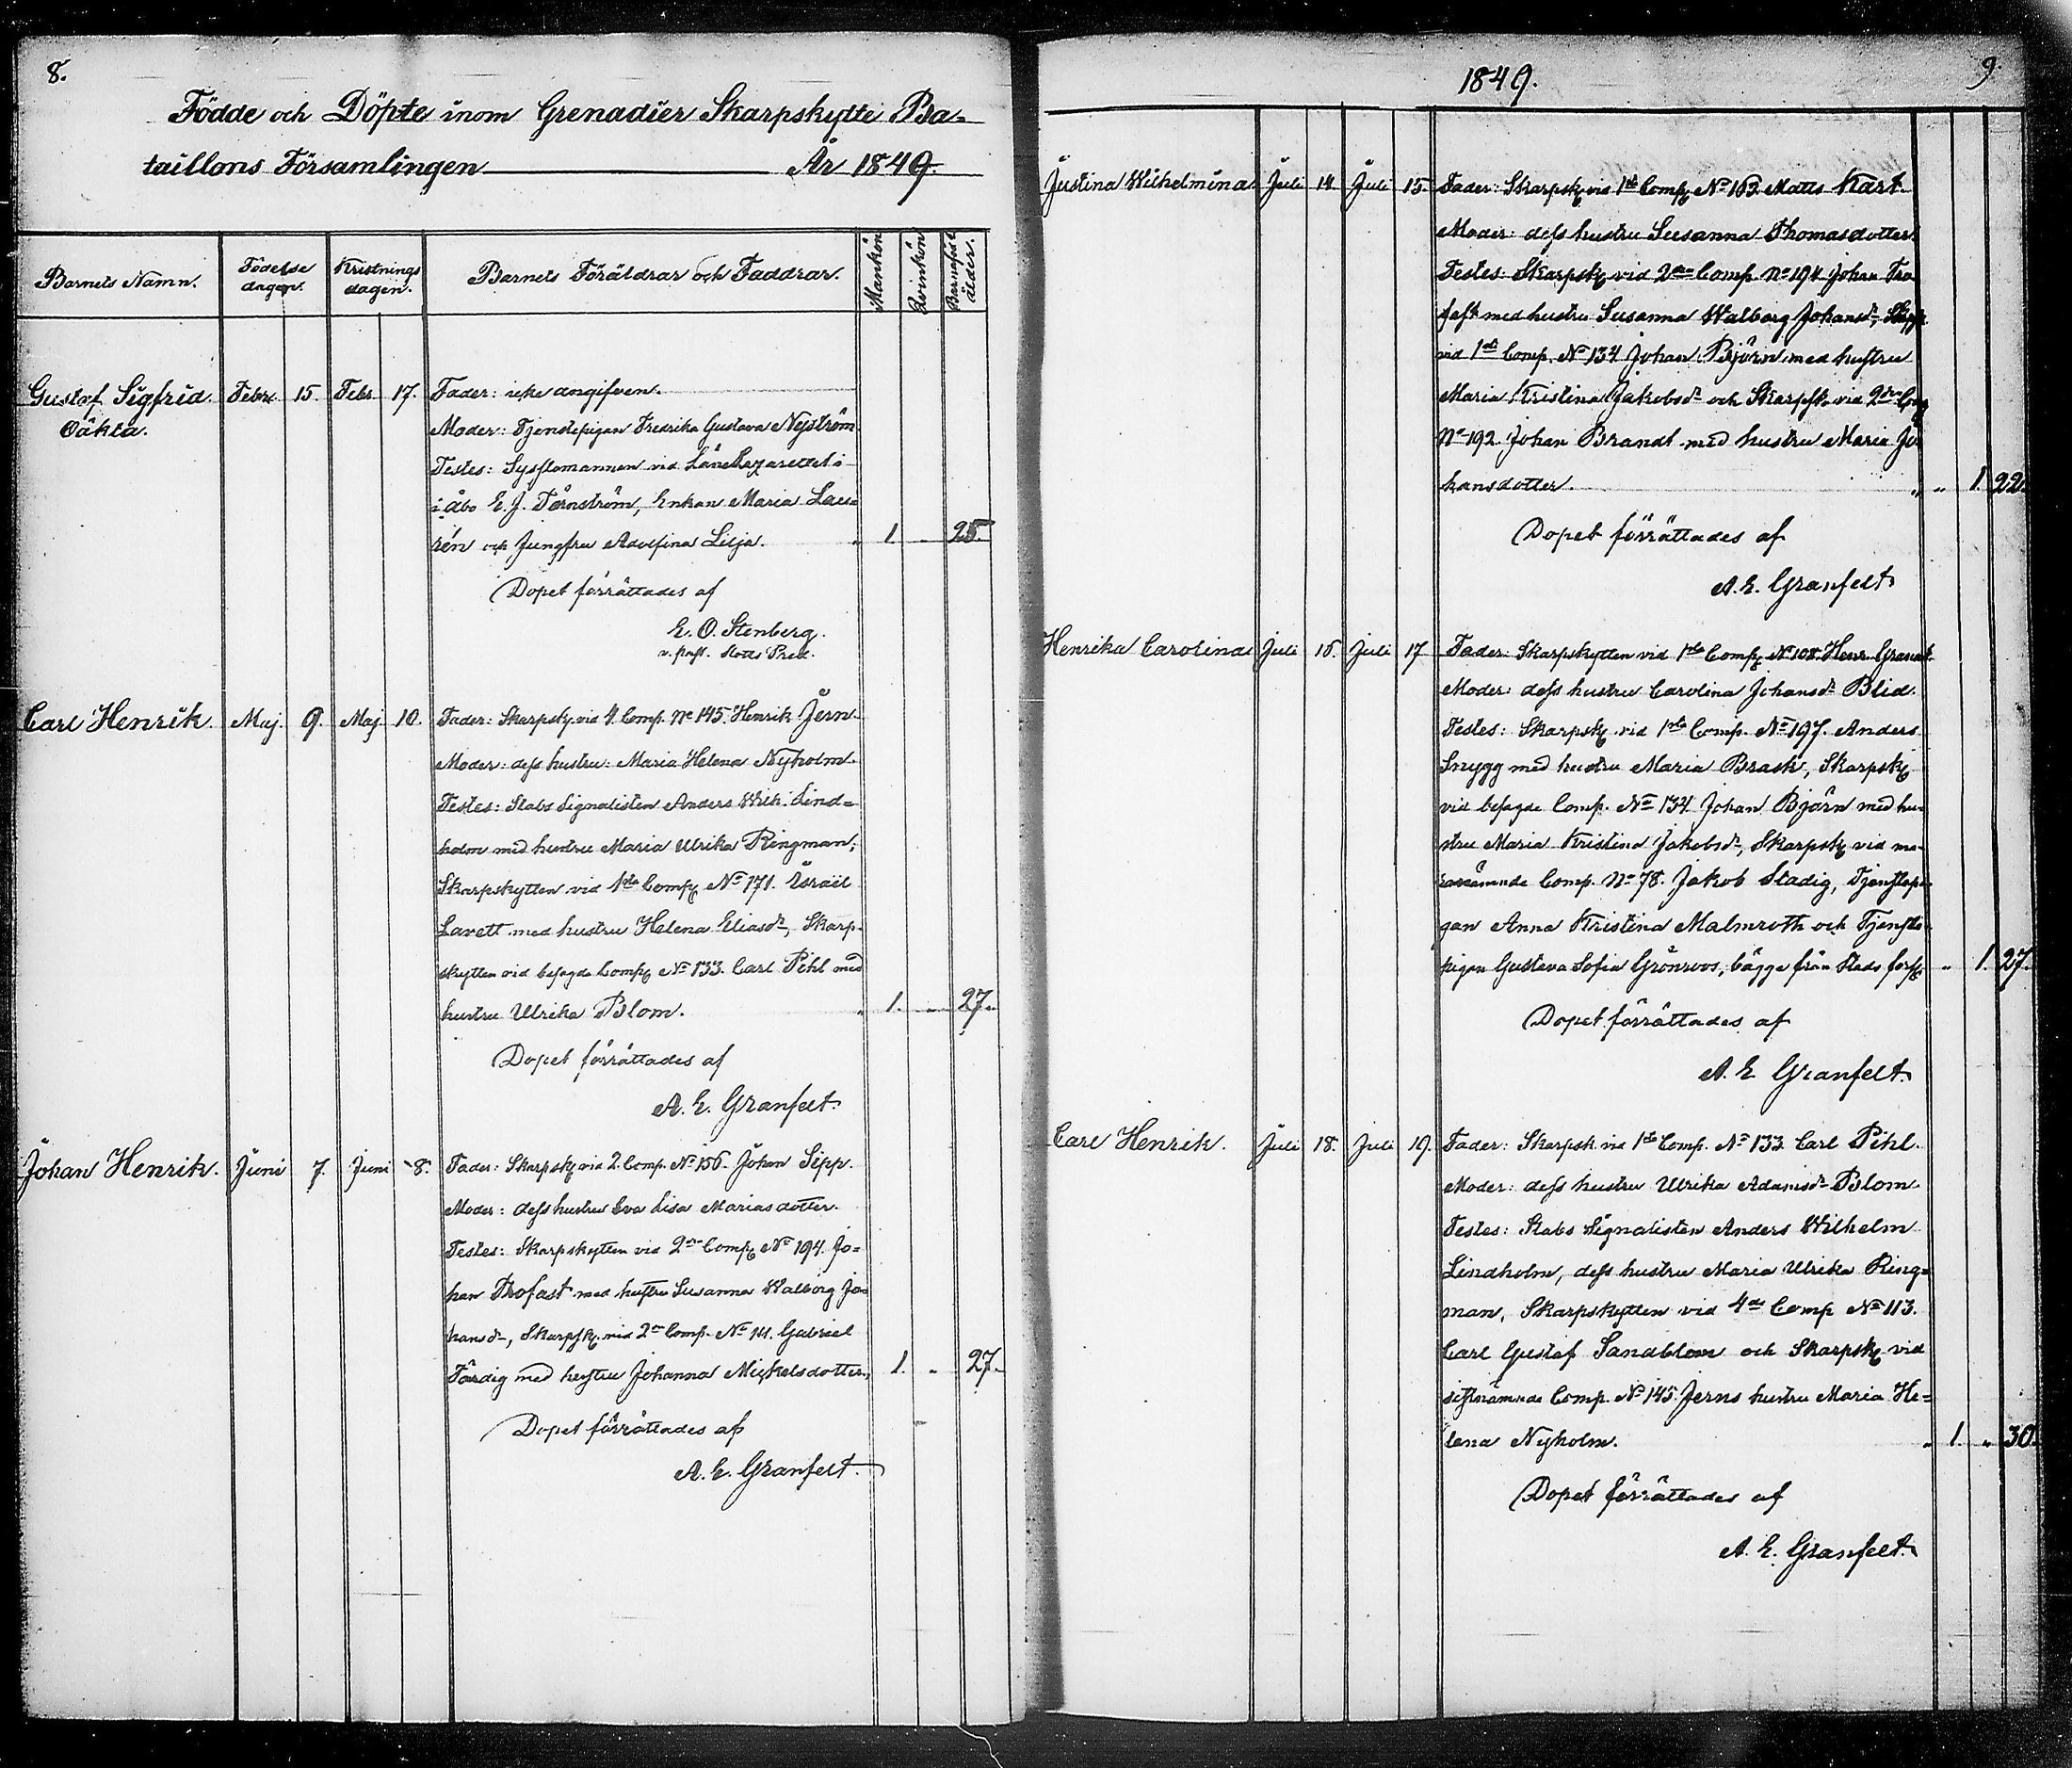 8.
Födde och Döpte inom Grenadier Skarpskytte Ba-
taillons Församlingen År 1849.
Barnets Namn.
Födelse
dagen.
Kristnings
dagen.
Barnets Föräldrar och Faddrar.
Mankön
Qvinkön
ålder.
Gustaf Sigfrid. Febr. 15. Febr. 17. Fader: icke angifven.
Oäkta.
Moder: Tjenstepigan Fredrika Gustava Nyström
Testes: Sysslomannen vid Läns Lazarettet i
i Åbo E. J. Törnström, Enkan Maria Lau-
rén och Jungfru Adolfina Lilja. 1 25.
Dopet förrättades af
E. O. Stenberg.
v. past. Slotts Pred.
Carl Henrik. Maj. 9. Maj 10. Fader: Skarpsk. vid 4. Comp. No 145. Henrik Jern
Moder: dess hustru: Maria Helena Nyholm.
Testes: Stabs Signalisten Anders Wilh. Lind=
holm med hustru Maria Ulrika Ringman;
Skarpskytten vid 1sta Comp. No 171. Israël
Lavett med hustru Helena Eliasdr, Skarp-
skytten vid besagde Comp. No 133. Carl Pihl med
hustru Ulrika Blom. 1. 27.
Dopet förrättades af
A. E. Granfelt.
Johan Henrik. Juni 7. Juni 8. Fader: Skarpsk. vid 2. Comp. No 156. Johan Sipp.
Moder: dess hustru Eva Lisa Mariasdotter.
Testes: Skarpskytten vid 2dra Comp. No 194. Jo=
han Trofast med hustru Susanna Walborg Jo-
hansdr, Skarpsk. vid 2dra Comp. No 111. Gabriel
Färdig med hustru Johanna Mickelsdotter. 1. " 27.
Dopet förrättades af
A. E. Granfelt.
1849.
9.
Justina Wilhelmina Juli 14 Juli 15. Fader: Skarpsk. vid 1sta Comp. No 163. Matts Karl.
Moder: dess hustru Susanna Thomasdotter.
Testes: Skarpsk. vid 2dra Comp. No 194 Johan Tro-
fast med hustru Susanna Walborg Johansdr,
vid 1sta Comp. No 134 Johan Björn med hustru
Maria Kristina Jakobsdr och Skarpsk. vid 2dra Comp
No 192 Johan Brandt med hustru Maria Jo
hansdotter. " 1. 22.
Dopet förrättades af
A. E. Granfelt.
Henrika Carolina Juli 16. Juli 17 Fader: Skarpskytten vid 1sta Comp. No 108. Henr. Granat
Moder: dess hustru Carolina Johansdr Blid.
Testes: Skarpsk. vid 1sta Comp. No 197. Anders
Snygg med hustru Maria Brask, Skarpsk.
vid besagde Comp. No 134 Johan Björn med hu-
stru Maria Kristina Jakobsdr, Skarpsk. vid
Comp. No 78. Jakob Stadig, Tjenstepi-
gan Anna Kristina Malmroth och Tjenste-
pigan Gustava Sofia Grönroos, bägge från Stads förs. " 1. 27.
Dopet förrättades af
A. E. Granfelt.
Carl Henrik. Juli 18. Juli 19. Fader: Skarpsk. vid 1sta Comp. No 133. Carl Pihl.
Moder: dess hustru Ulrika Adamsdr Blom.
Testes: Stabs Signalisten Anders Wilhelm
Lindholm, dess hustru Maria Ulrika Ring=
man, Skarpskytten vid 4de Comp No 113.
Carl Gustaf Sandblom och Skarpsk. vid
sistnämnde Comp. No 145. Jerns hustru Maria He=
lena Nyholm. " 1. " 30.
Dopet förrättades af
A. E. Granfelt.